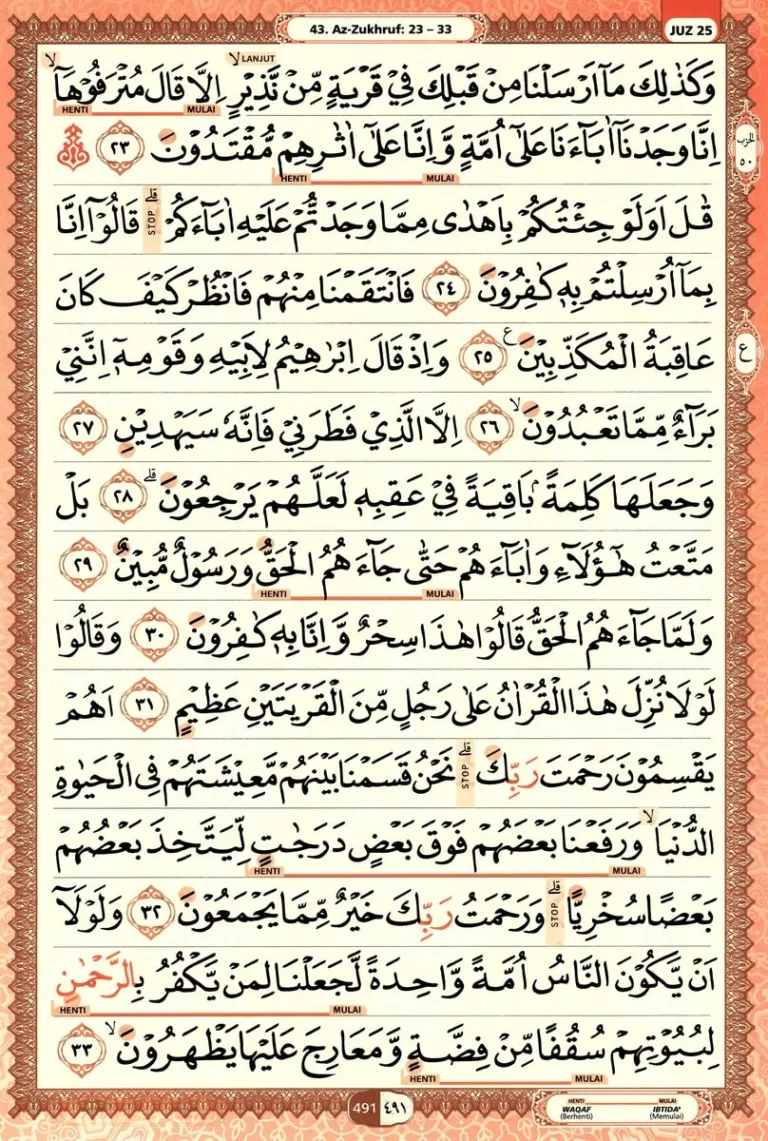 43. Az-Zukhruf: 23 – 33
JUZ 25
لا LANJUT لا
وَكَذٰلِكَ مَآ اَرْسَلْنَا مِنْ قَبْلِكَ فِيْ قَرْيَةٍ مِّنْ نَّذِيْرٍ اِلَّا قَالَ مُتْرَفُوْهَآ
HENTI MULAI
اِنَّا وَجَدْنَآ اٰبَاۤءَنَا عَلٰٓى اُمَّةٍ وَّاِنَّا عَلٰٓى اٰثٰرِهِمْ مُّقْتَدُوْنَ ٢٣
الحزب ٥٠
HENTI MULAI
قٰلَ اَوَلَوْ جِئْتُكُمْ بِاَهْدٰى مِمَّا وَجَدْتُّمْ عَلَيْهِ اٰبَاۤءَكُمْۗ قَالُوْٓا اِنَّا
قلے STOP
بِمَآ اُرْسِلْتُمْ بِهٖ كٰفِرُوْنَ ٢٤ فَانْتَقَمْنَا مِنْهُمْ فَانْظُرْ كَيْفَ كَانَ
عَاقِبَةُ الْمُكَذِّبِيْنَ ࣖ ٢٥ وَاِذْ قَالَ اِبْرٰهِيْمُ لِاَبِيْهِ وَقَوْمِهٖٓ اِنَّنِيْ
ع
بَرَاۤءٌ مِّمَّا تَعْبُدُوْنَۙ ٢٦ اِلَّا الَّذِيْ فَطَرَنِيْ فَاِنَّهٗ سَيَهْدِيْنِ ٢٧
وَجَعَلَهَا كَلِمَةً ۢ بَاقِيَةً فِيْ عَقِبِهٖ لَعَلَّهُمْ يَرْجِعُوْنَۗ ٢٨ بَلْ
مَتَّعْتُ هٰٓؤُلَاۤءِ وَاٰبَاۤءَهُمْ حَتّٰى جَاۤءَهُمُ الْحَقُّ وَرَسُوْلٌ مُّبِيْنٌ ٢٩
HENTI MULAI
وَلَمَّا جَاۤءَهُمُ الْحَقُّ قَالُوْا هٰذَا سِحْرٌ وَّاِنَّا بِهٖ كٰفِرُوْنَ ٣٠ وَقَالُوْا
لَوْلَا نُزِّلَ هٰذَا الْقُرْاٰنُ عَلٰى رَجُلٍ مِّنَ الْقَرْيَتَيْنِ عَظِيْمٍ ٣١ اَهُمْ
يَقْسِمُوْنَ رَحْمَتَ رَبِّكَۗ نَحْنُ قَسَمْنَا بَيْنَهُمْ مَّعِيْشَتَهُمْ فِى الْحَيٰوةِ
قلے STOP
الدُّنْيَاۙ وَرَفَعْنَا بَعْضَهُمْ فَوْقَ بَعْضٍ دَرَجٰتٍ لِّيَتَّخِذَ بَعْضُهُمْ
HENTI MULAI
بَعْضًا سُخْرِيًّاۗ وَرَحْمَتُ رَبِّكَ خَيْرٌ مِّمَّا يَجْمَعُوْنَ ٣٢ وَلَوْلَآ
قلے STOP
اَنْ يَّكُوْنَ النَّاسُ اُمَّةً وَّاحِدَةً لَّجَعَلْنَا لِمَنْ يَّكْفُرُ بِالرَّحْمٰنِ
HENTI MULAI
لِبُيُوْتِهِمْ سُقُفًا مِّنْ فِضَّةٍ وَّمَعَارِجَ عَلَيْهَا يَظْهَرُوْنَۙ ٣٣
HENTI MULAI
491 ٤٩١
HENTI MULAI
WAQAF IBTIDA'
(Berhenti) (Memulai)